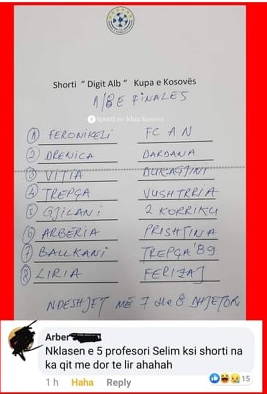 Shorti " Digit Alb " Kupa e Kosovës
1/8 E FINALES
Sporti ne Klan Kosova
1 FERONIKELI FC A N
2 DRENICA DARDANA
3 VITIA DUKAGJINI
4 TREPÇA VUSHTRRIA
5 GJILANI 2 KORRIKU
6 ARBËRIA PRISHTINA
7 BALLKANI TREPÇA'89
8 LIRIA FERIZAJ
NDESHJET ME 7 dhe 8 DHJETOR
Arber
Nklasen e 5 profesori Selim ksi shorti na
ka qit me dor te lir ahahah
1 h Haha Reply 15